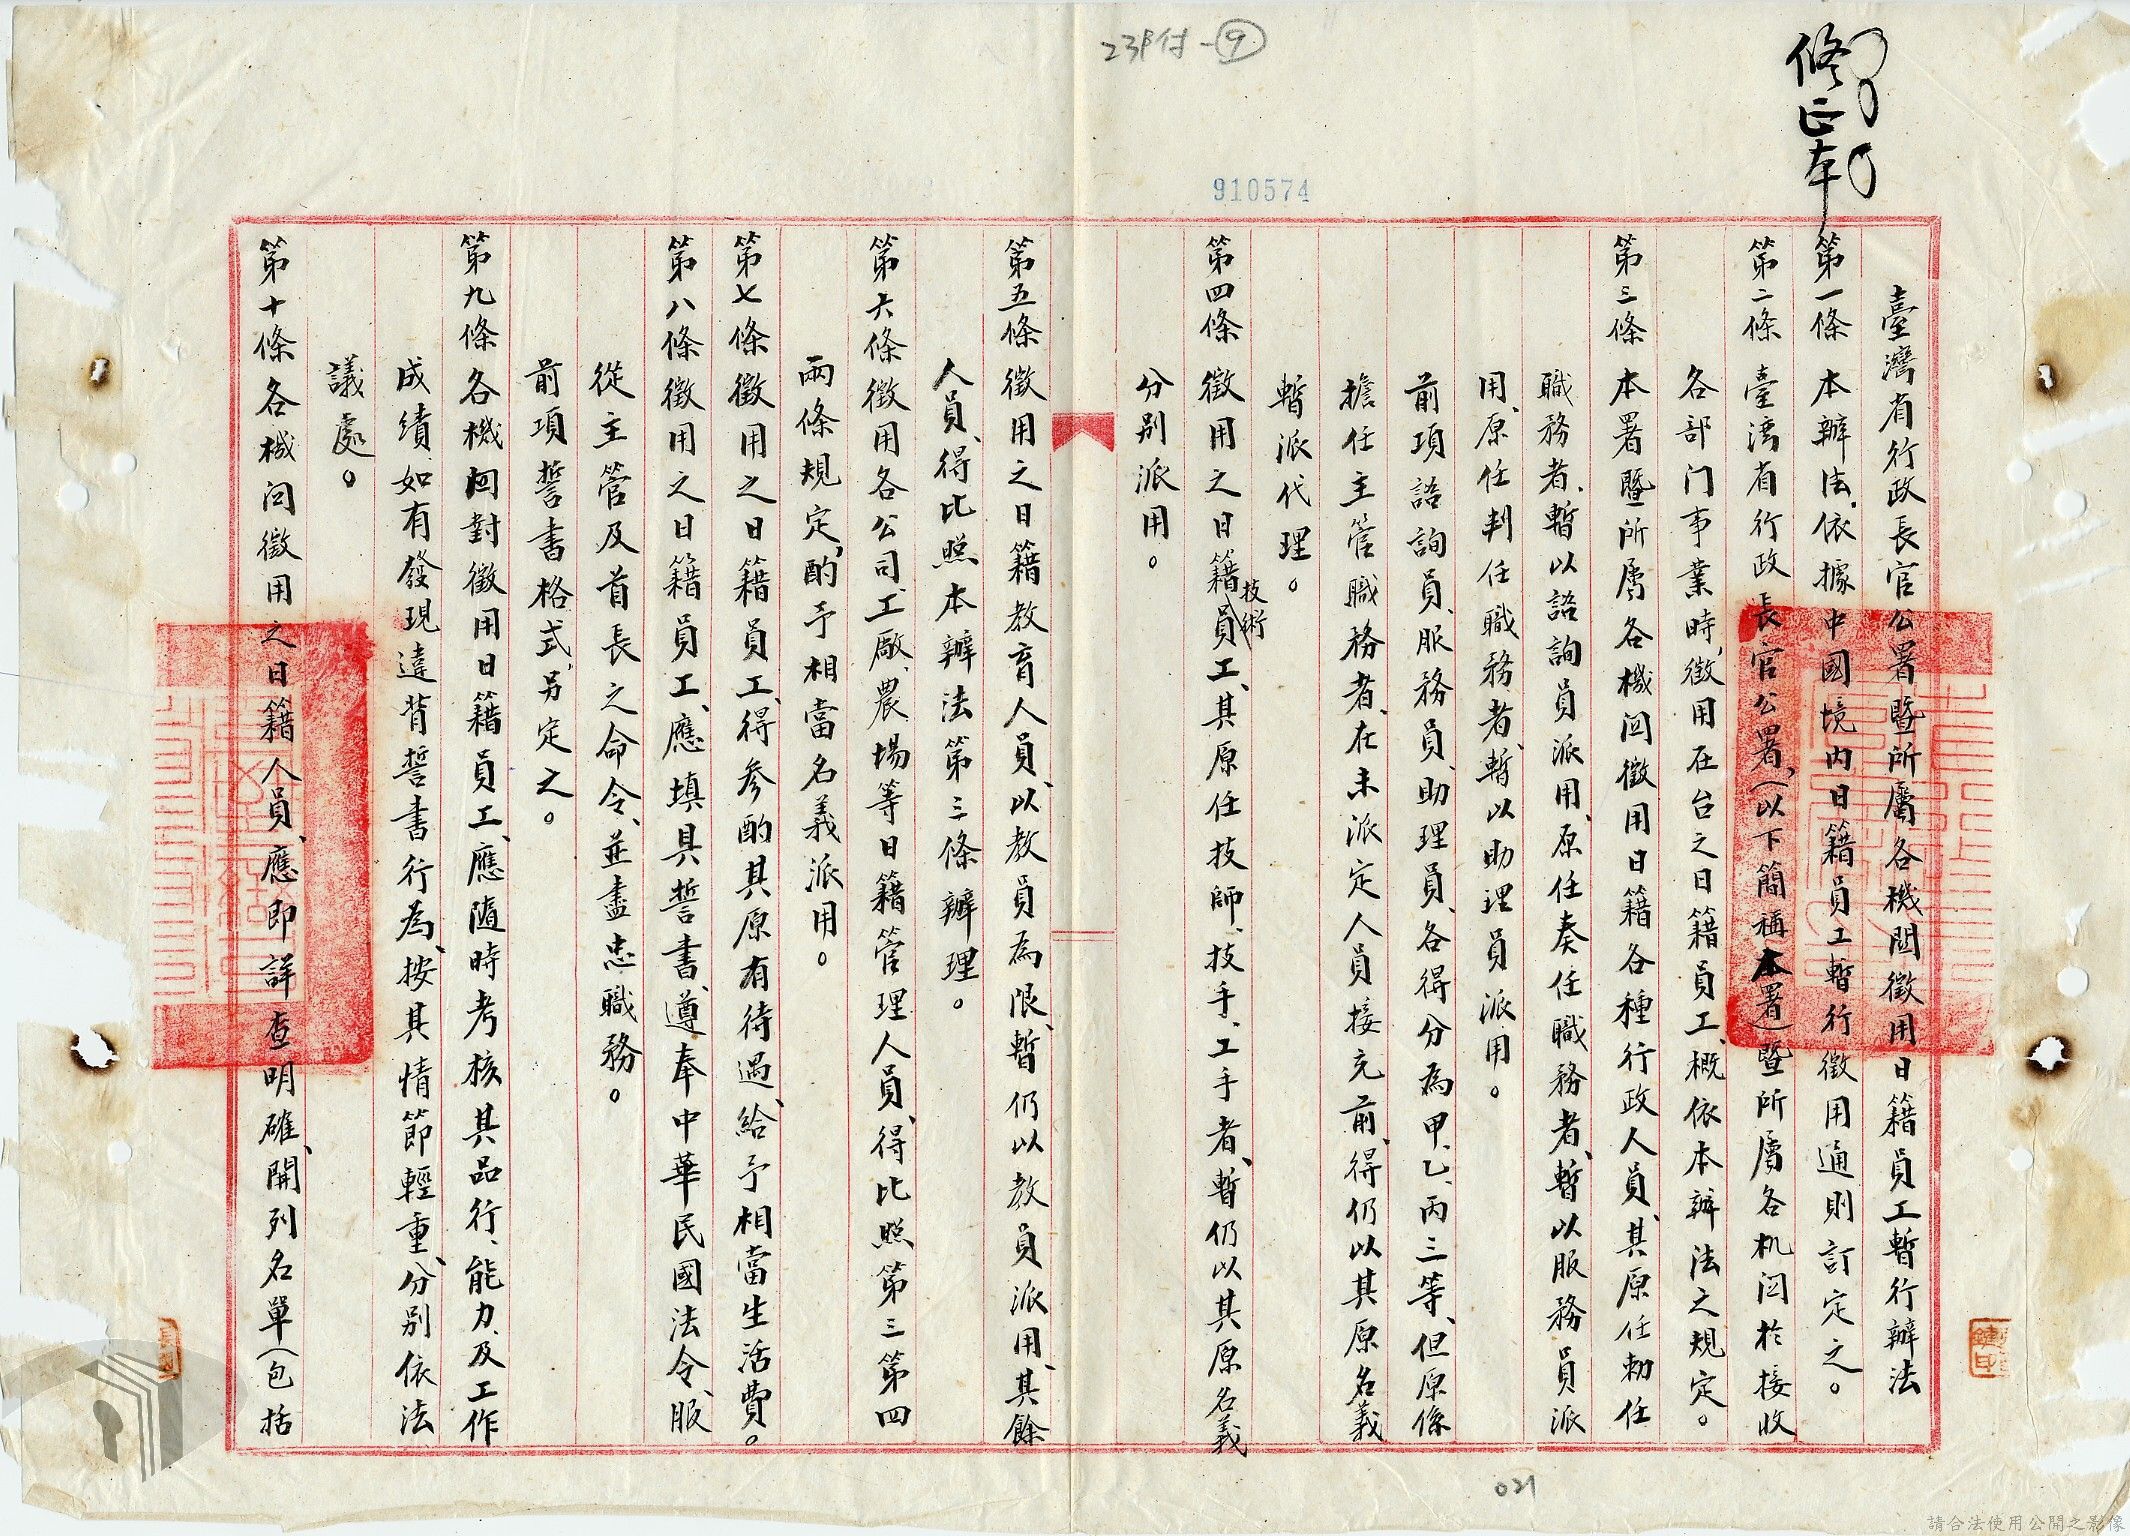 修正本
23附付-⑨
910574
臺灣省行政長官公署暨所屬各機関徵用日籍員工暫行辦法
第一條 本辦法、依據中國境內日籍員工暫行徵用通則訂定之。
第二條 臺湾省行政長官公署、(以下簡稱本署)暨所屬各机関於接收
各部门事業時、徵用在台之日籍員工、概依本辦法之規定。
第三條 本署暨所屬各機関徵用日籍各種行政人員、其原任勅任
職務者、暫以諮詢員派用、原任奏任職務者、暫以服務員派
用、原任判任職務者、暫以助理員派用。
前項諮詢員、服務員、助理員、各得分為甲、乙、丙三等、但原係
擔任主管職務者、在未派定人員接充前、得仍以其原名義
暫派代理。
第四條 徵用之日籍技術員工、其原任技師、技手、工手者、暫仍以其原名義
分別派用。
第五條 徵用之日籍教育人員、以教員為限、暫仍以教員派用、其餘
人員、得比照本辦法第三條辦理。
第六條 徵用各公司、工廠、農場等日籍管理人員、得比照第三第四
兩條規定、酌予相當名義派用。
第七條 徵用之日籍員工、得參酌其原有待遇、給予相當生活費。
第八條 徵用之日籍員工、應填具誓書、遵奉中華民國法令、服
從主管及首長之命令、並盡忠職務。
前項誓書格式、另定之。
第九條 各機関對徵用日籍員工、應隨時考核其品行、能力、及工作
成績、如有發現違背誓書行為、按其情節輕重、分別依法
議處。
第十條 各機関徵用之日籍人員、應即詳查明確、開列名單(包括
021
請合法使用公開之影像